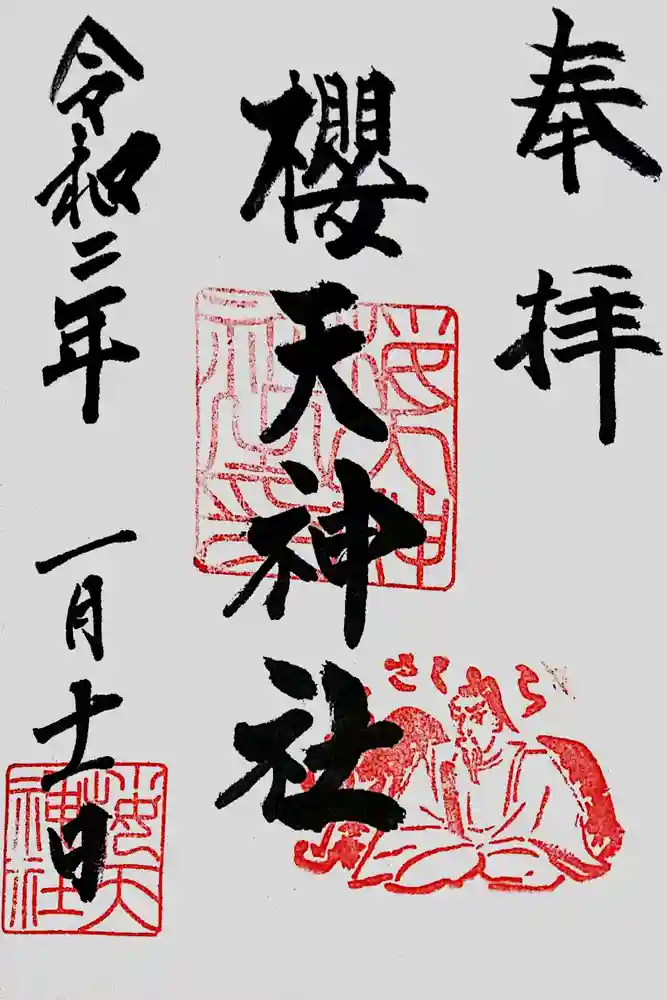 奉拝
櫻天神社
令和二年 一月十一日
桜天神社之印
さくら
桜天神社